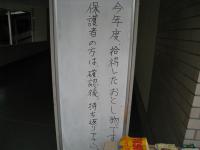 今年度拾得したおとし物です。
保護者の方は、確認後、持ち返りて